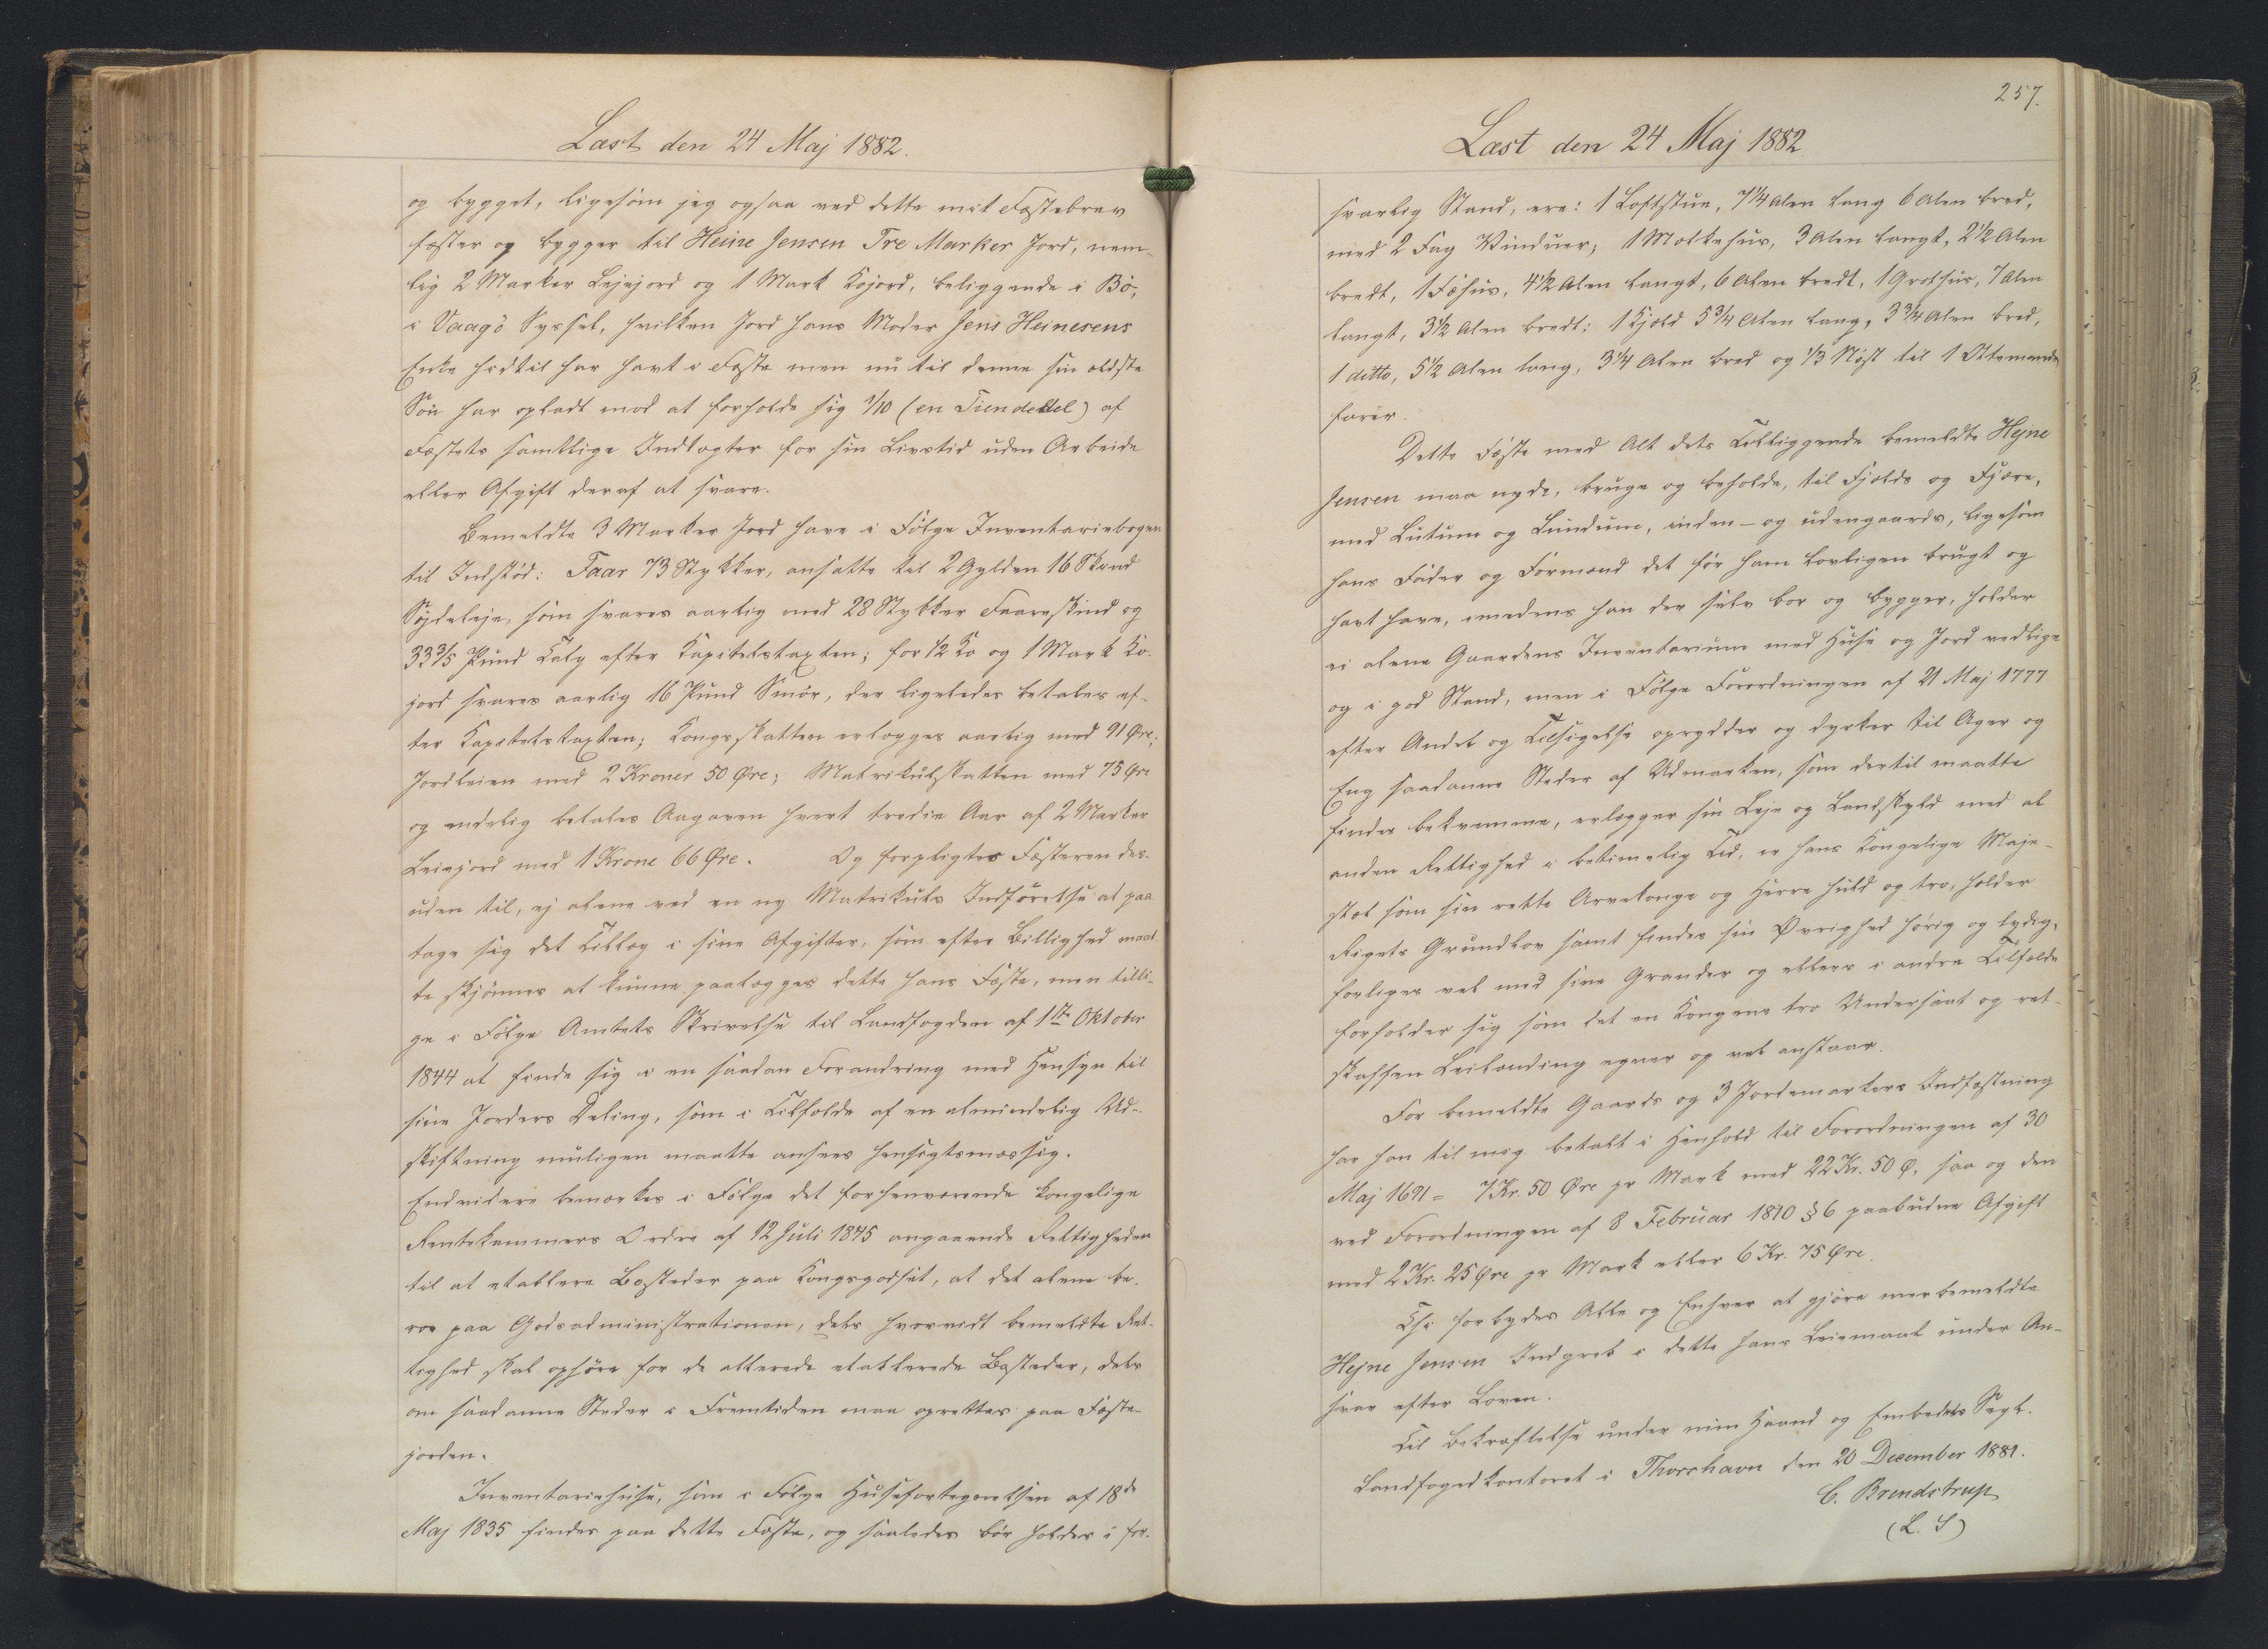 Læst den 24 Maj 1882.
og bygget, ligesom jeg ogsaa ved dette mit Fæstebrev
fæster og bygger til Heine Jensen Tre Marker Jord, nem-
lig 2 Marker Lejejord og 1 Mark Kojord, beliggende i Bö,
i Vaagö Syssel, hvilken Jord hans Moder Jens Heinesens
Enke hidtil har havt i Fæste men nu til denne sin ældste
Sön har opladt mod at forholde sig 1/10 (en Tiendedel) af
Fæstets samtlige Indtægter for sin Livstid uden Arbeide
eller Afgift deraf at svare.
Bemeldte 3 Marker Jord have i Fölge Inventariebogen
til Indstöd: Faar 73 Stykker, ansatte til 2 Gylden 16 Skind
Söjdeleje, som svares aarlig med 28 Stykker Faareskind og
33 3/5 Pund Talg efter Kapitelstaxten; for 1/2 Ko og 1 Mark Ko-
jord svares aarlig 16 Pund Smör, der ligeledes betales ef-
ter Kapitelstaxten; Kongsskatten erlægges aarlig med 91 Øre;
Jordleien med 2 Kroner 50 Øre; Matrikulskatten med 75 Øre
og endelig betales Aagaven hvert tredie Aar af 2 Marker
Leiejord med 1 Krone 66 Øre. Og forpligtes Fæsteren des-
uden til, ej alene ved en ny Matrikuls Indförelse at paa
tage sig det Tillæg i sine Afgifter, som efter Billighed maat
te skjönnes at kunne paalægges dette hans Fæste, men tilli-
ge i Fölge Amtets Skrivelse til Landfogden af 1ste Oktober
1844 at finde sig i en saadan Forandring med Hensyn til
sine Jorders Deling, som i Tilfælde af en almindelig Ud-
skiftning muligen maatte ansees hensigtsmæssig.
Endvidere bemærkes i Fölge det forhenværende kongelige
Rentekammers Ordre af 12 Juli 1845 angaaende Rettigheden
til at etablere Bosteder paa Kongsgodset, at det alene be-
ror paa Godsadministrationen, dels hvorvidt bemeldte Ret-
tighed skal ophöre for de allerede etablerede Bosteder, dels
om saadanne Steder i Fremtiden maa oprettes paa Fæste-
jorden.
Inventariehuse, som i Fölge Husefortegnelsen af 18de
Maj 1835 findes paa dette Fæste, og saaledes bör holdes i for-
257.
Læst den 24 Maj 1882
svarlig Stand, ere: 1 Loftstue, 7 1/4 Alen lang 6 Alen bred,
med 2 Fag Vinduer; 1 Molkehus, 3 Alen langt, 2 1/2 Alen
bredt, 1 Fæhus, 4 1/2 Alen langt, 6 Alen bredt, 1 Grothus, 7 Alen
langt, 3 1/2 Alen bredt; 1 Kjold 5 3/4 Alen lang, 3 3/4 Alen bred,
1 ditto, 5 1/2 Alen lang, 3 1/4 Alen bred og 1/3 Nöst til 1 Ottemands
farer.
Dette Fæste med Alt dets Tilliggende bemeldte Hejne
Jensen maa nyde, bruge og beholde, til Fjelds og Fjære,
med Lutum og Lundum, inden- og udengaards, ligesom
hans Fader og Formænd det för ham lovligen brugt og
havt have, imedens han der selv bor og bygger, holder
ei alene Gaardens Inventarium med Huse og Jord vedlige
og i god Stand, men i Fölge Forordningen af 21 Maj 1777
efter Andel og Tilsigelse oprydder og dyrker til Ager og
Eng saadanne Steder af Udmarken, som dertil maatte
findes bekvemme, erlægger sin Leje og Landskyld med al
anden Rettighed i betimelig Tid, er hans Kongelige Maje-
stæt som sin rette Arvekonge og Herre huld og tro, holder
Rigets Grundlov samt findes sin Øvrighed hörig og lydig,
forliges vel med sine Grander og ellers i andre Tilfælde
forholder sig som det en Kongens tro Undersaat og ret-
skaffen Leilænding egner og vel anstaar.
For bemeldte Gaards og 3 Jordemarkers Indfæstning
har han til mig betalt i Henhold til Forordningen af 30
Maj 1691 = 7 Kr. 50 Øre pr Mark med 22 Kr. 50 Ø, saa og den
ved Forordningen af 8 Februar 1810 § 6 paabudne Afgift
med 2 Kr. 25 Øre pr Mark eller 6 Kr. 75 Øre.
Thi forbydes Alle og Enhver at gjöre merbemeldte
Hejne Jensen Indgreb i dette hans Leiemaal under An-
svar efter Loven.
Til Bekræftelse under min Haand og Embeds Segl.
Landfogedkontoret i Thorshavn den 20 December 1881.
C. Brendstrup
(L. S)